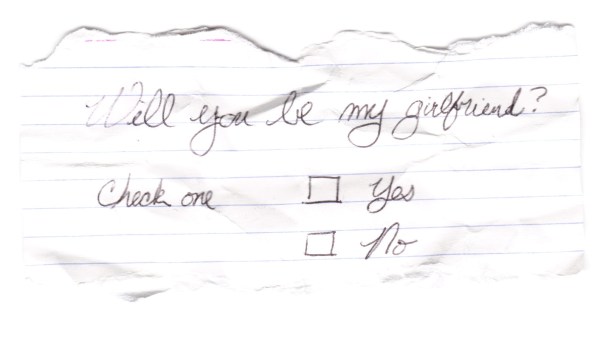 Will you be my girlfriend?
Check one ☐ Yes
☐ No